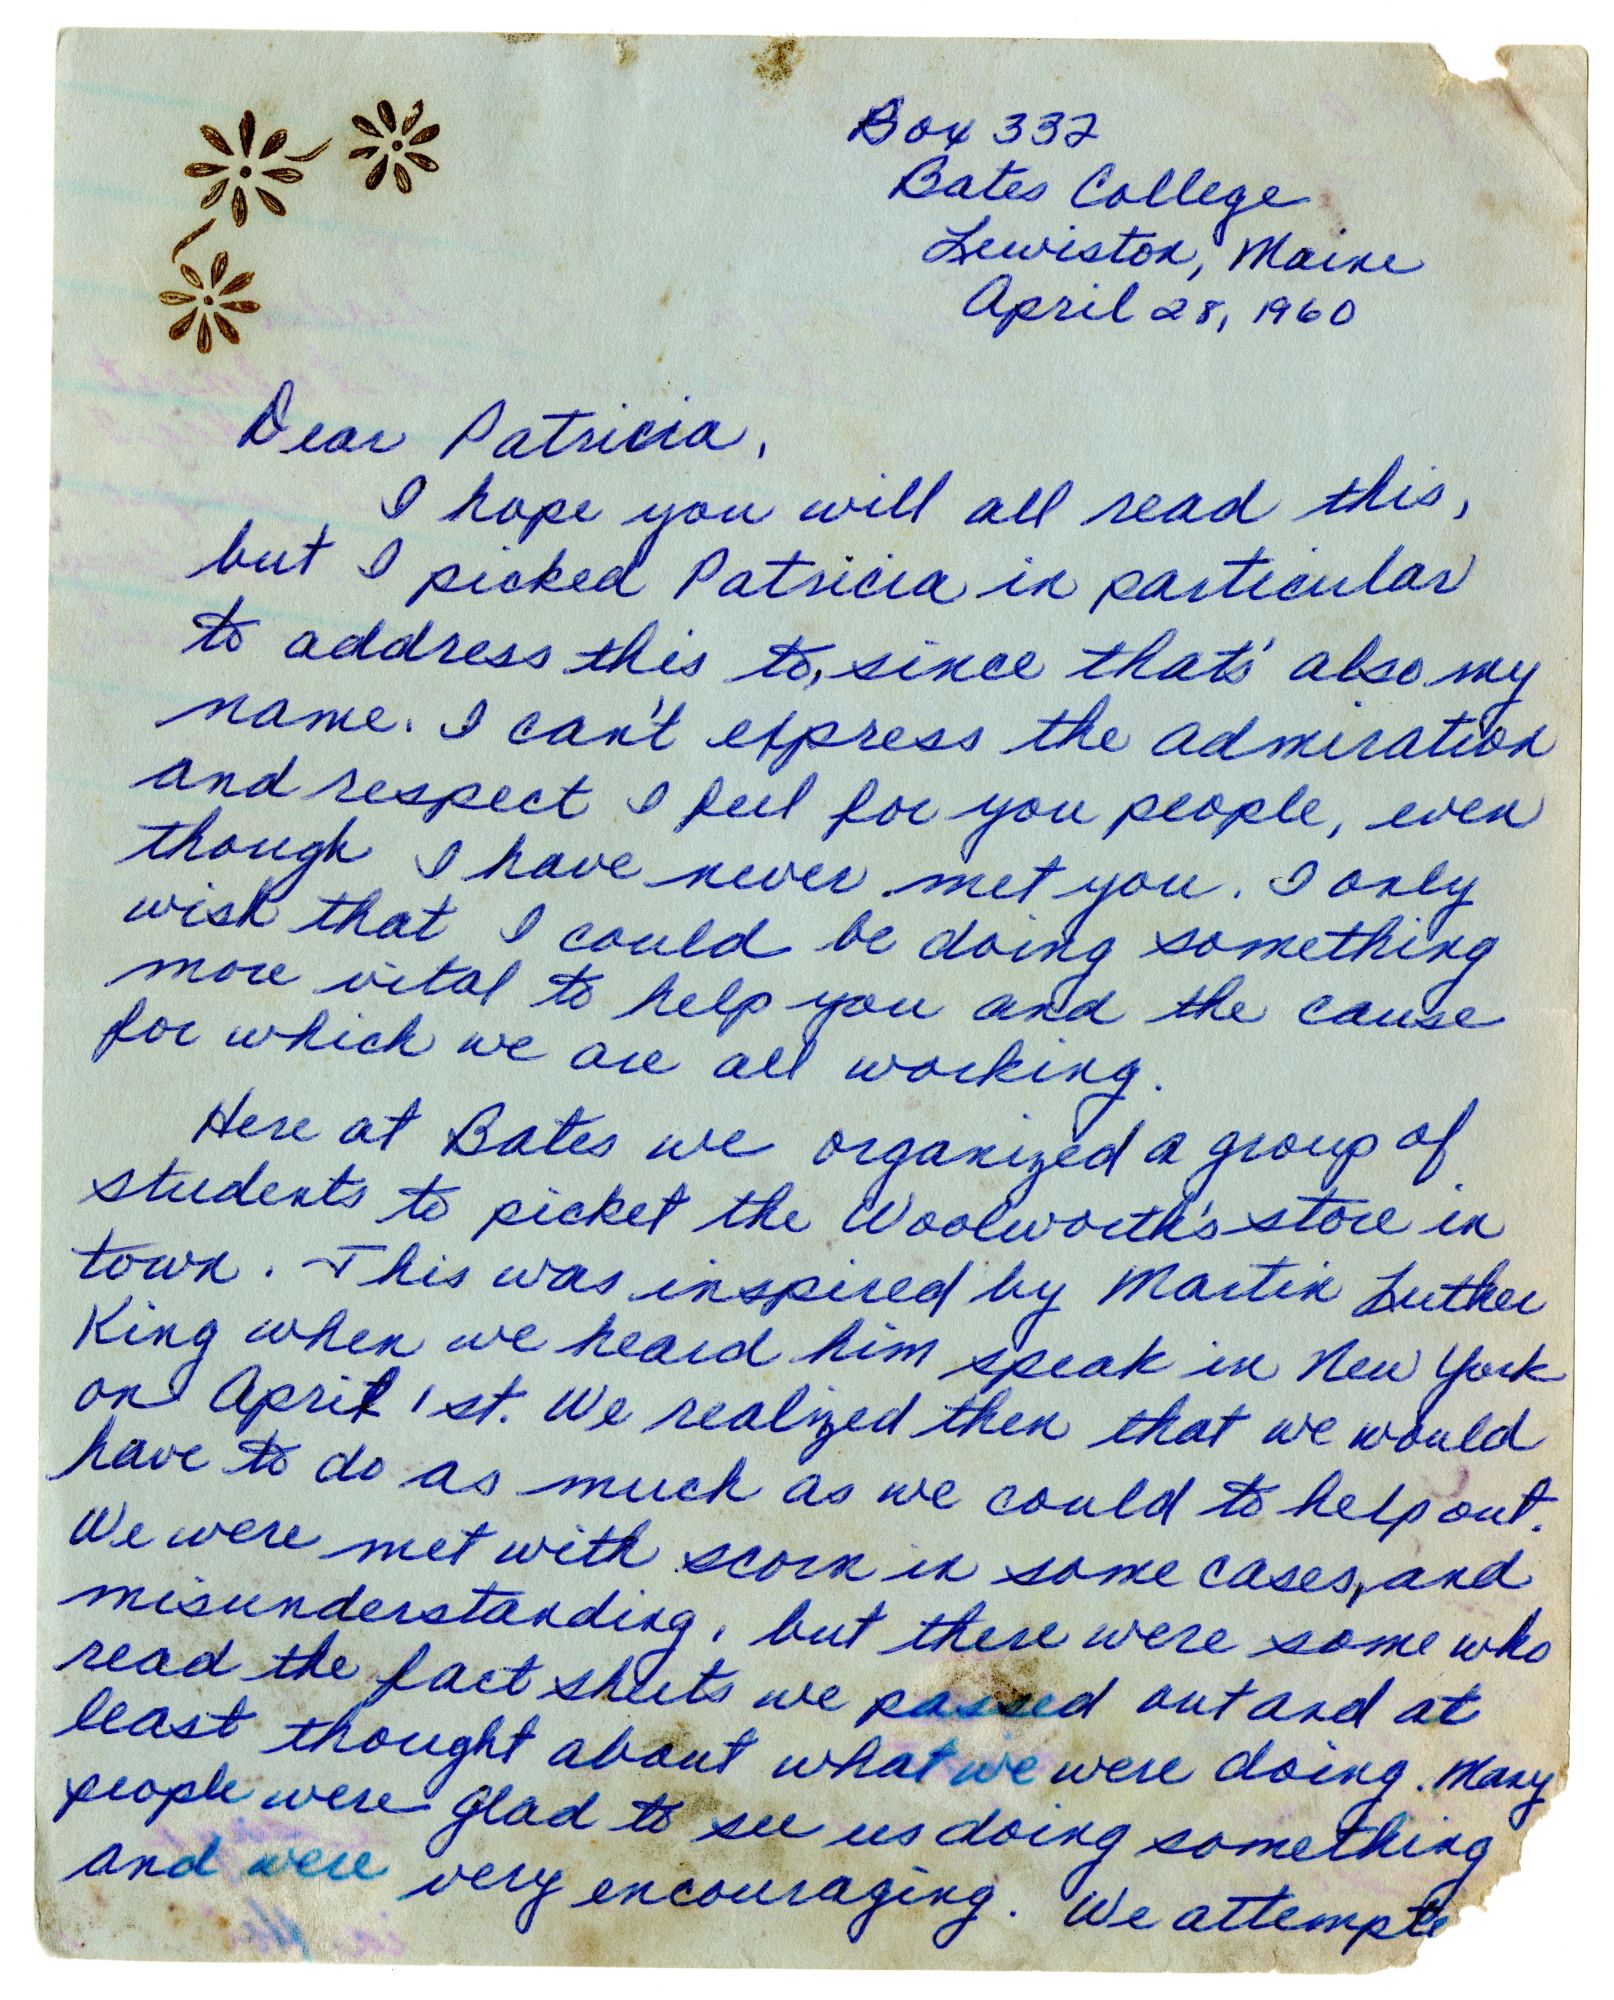 Box 332
Bates College
Lewiston, Maine
April 28, 1960
Dear Patricia,
I hope you will all read this,
but I picked Patricia in particular
to address this to, since that's also my
name. I can't express the admiration
and respect I feel for you people, even
though I have never met you. I only
wish that I could be doing something
more vital to help you and the cause
for which we are all working.
Here at Bates we organized a group of
students to picket the Woolworth's store in
town. This was inspired by Martin Luther
King when we heard him speak in New York
on April 1st. We realized then that we would
have to do as much as we could to help out.
We were met with scorn in some cases, and
misunderstanding, but there were some who
read the fact sheets we passed out and at
least thought about what we were doing. Many
people were glad to see us doing something
and were very encouraging. We attempte